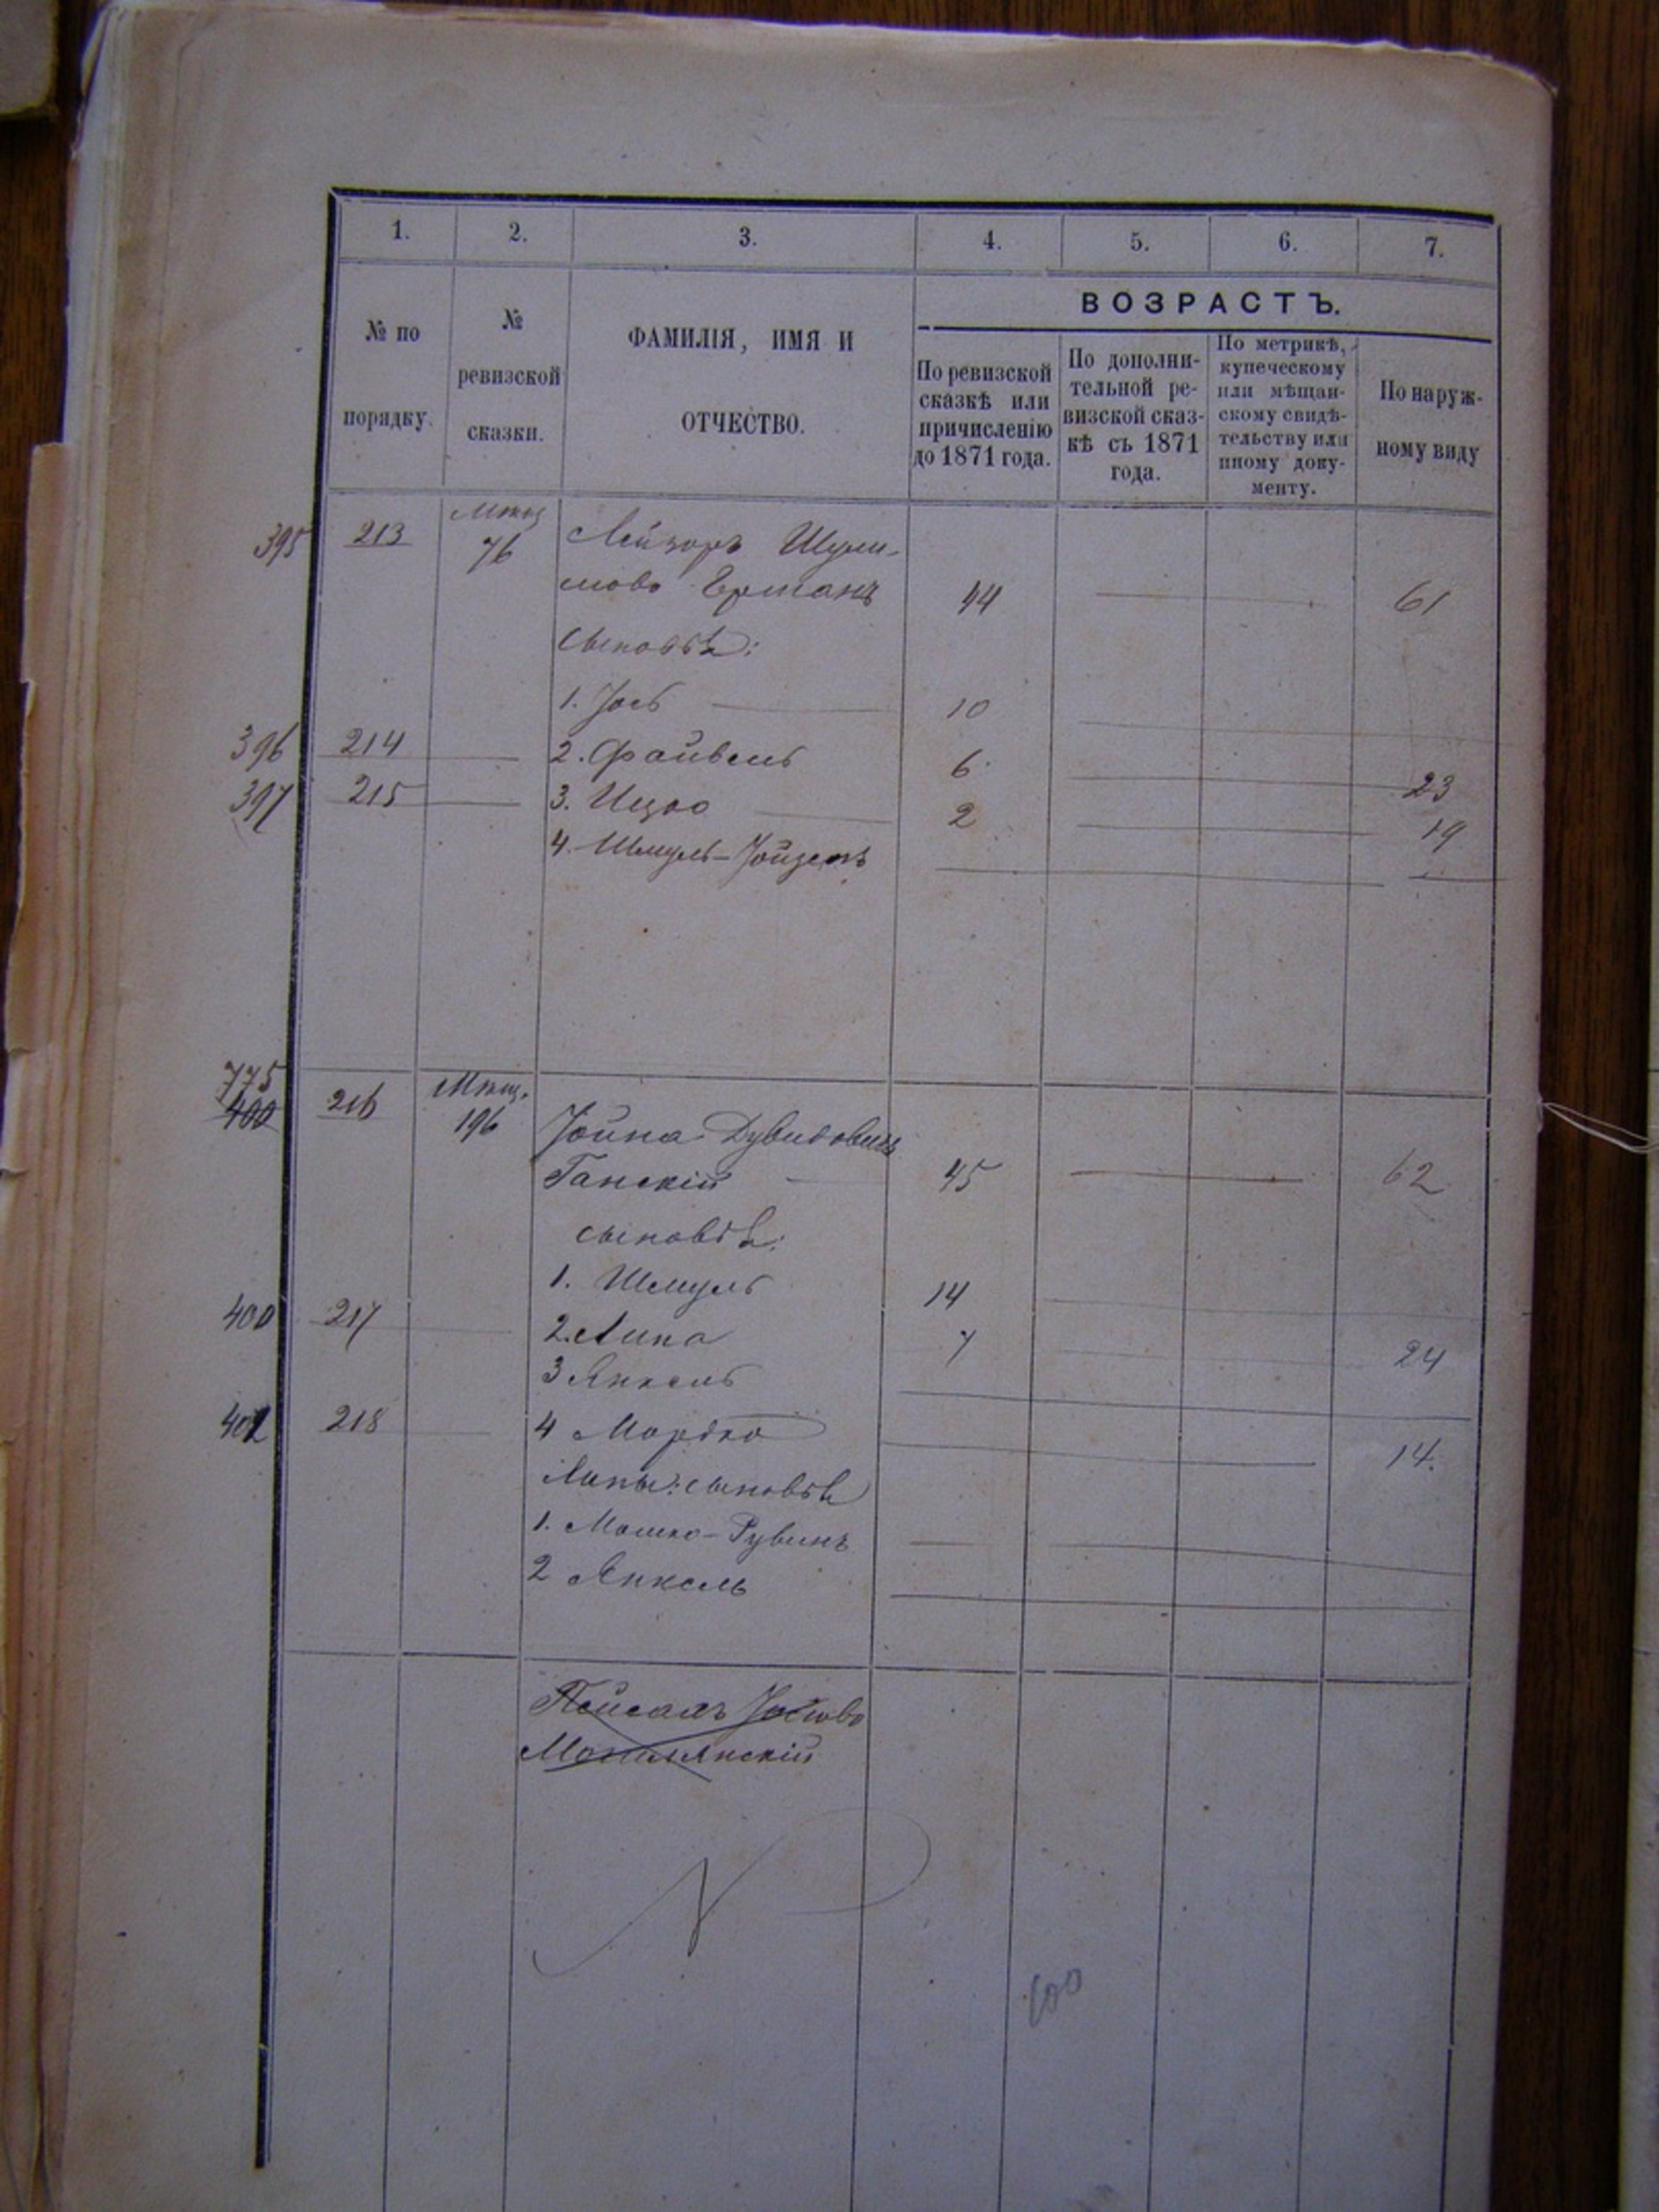 1. 2. 3. 4. 5. 6. 7.
№ по порядку.
№ ревизской сказки.
ФАМИЛІЯ, ИМЯ И ОТЧЕСТВО.
ВОЗРАСТЪ.
По ревизской сказкѣ или причисленію до 1871 года.
По дополнительной ревизской сказкѣ съ 1871 года.
По метрикѣ, купеческому или мѣщанскому свидѣтельству или иному документу.
По наружному виду
395 213 76 Лейзоръ
44 61
сыновья:
1. Іось 10
396 214 2. Файвель 6 23
397 215 3. Ицко 2 19
4. Шмуль-
775
400 216 Мѣщ. 196 Іойна Дувидовичъ
Ганскій 45 62
сыновья:
1. Шмуль 14
400 217 2. Липа 7 24
3 Янкель
402 218 4 Мордко 14.
Липы: сыновья
1. Мошко-Рувинъ
2 Янкель
Пейсахъ
100